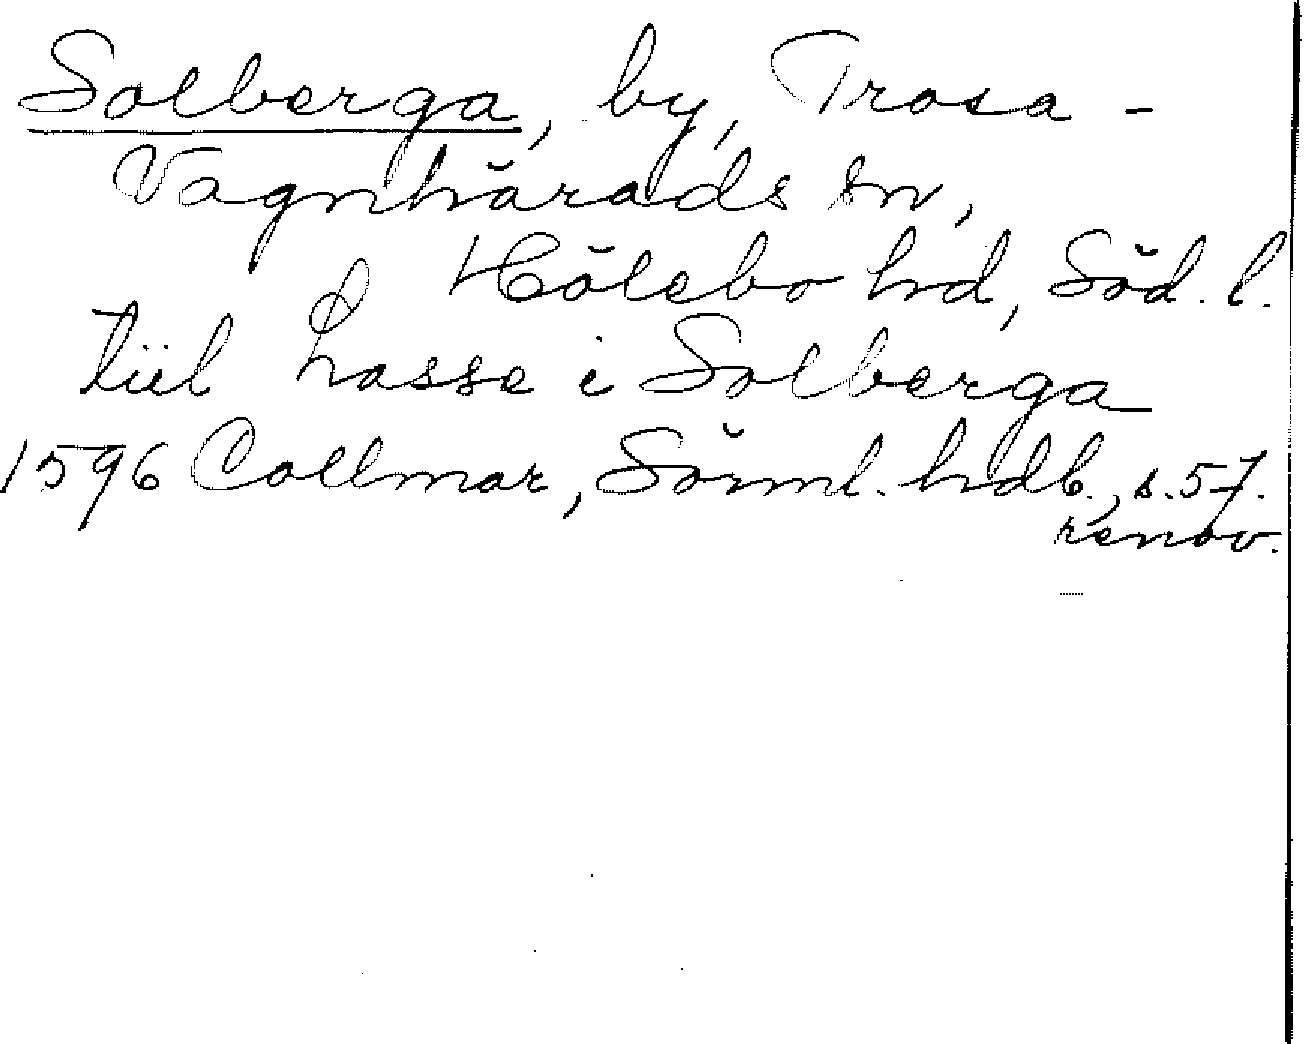 Solberga, by, Trosa-
Vagnhärads sn,
Hölebo hd, Söd. l.
till Lasse i Solberga
1596 Collmar, Sörml. hdb., s. 57.
renov.